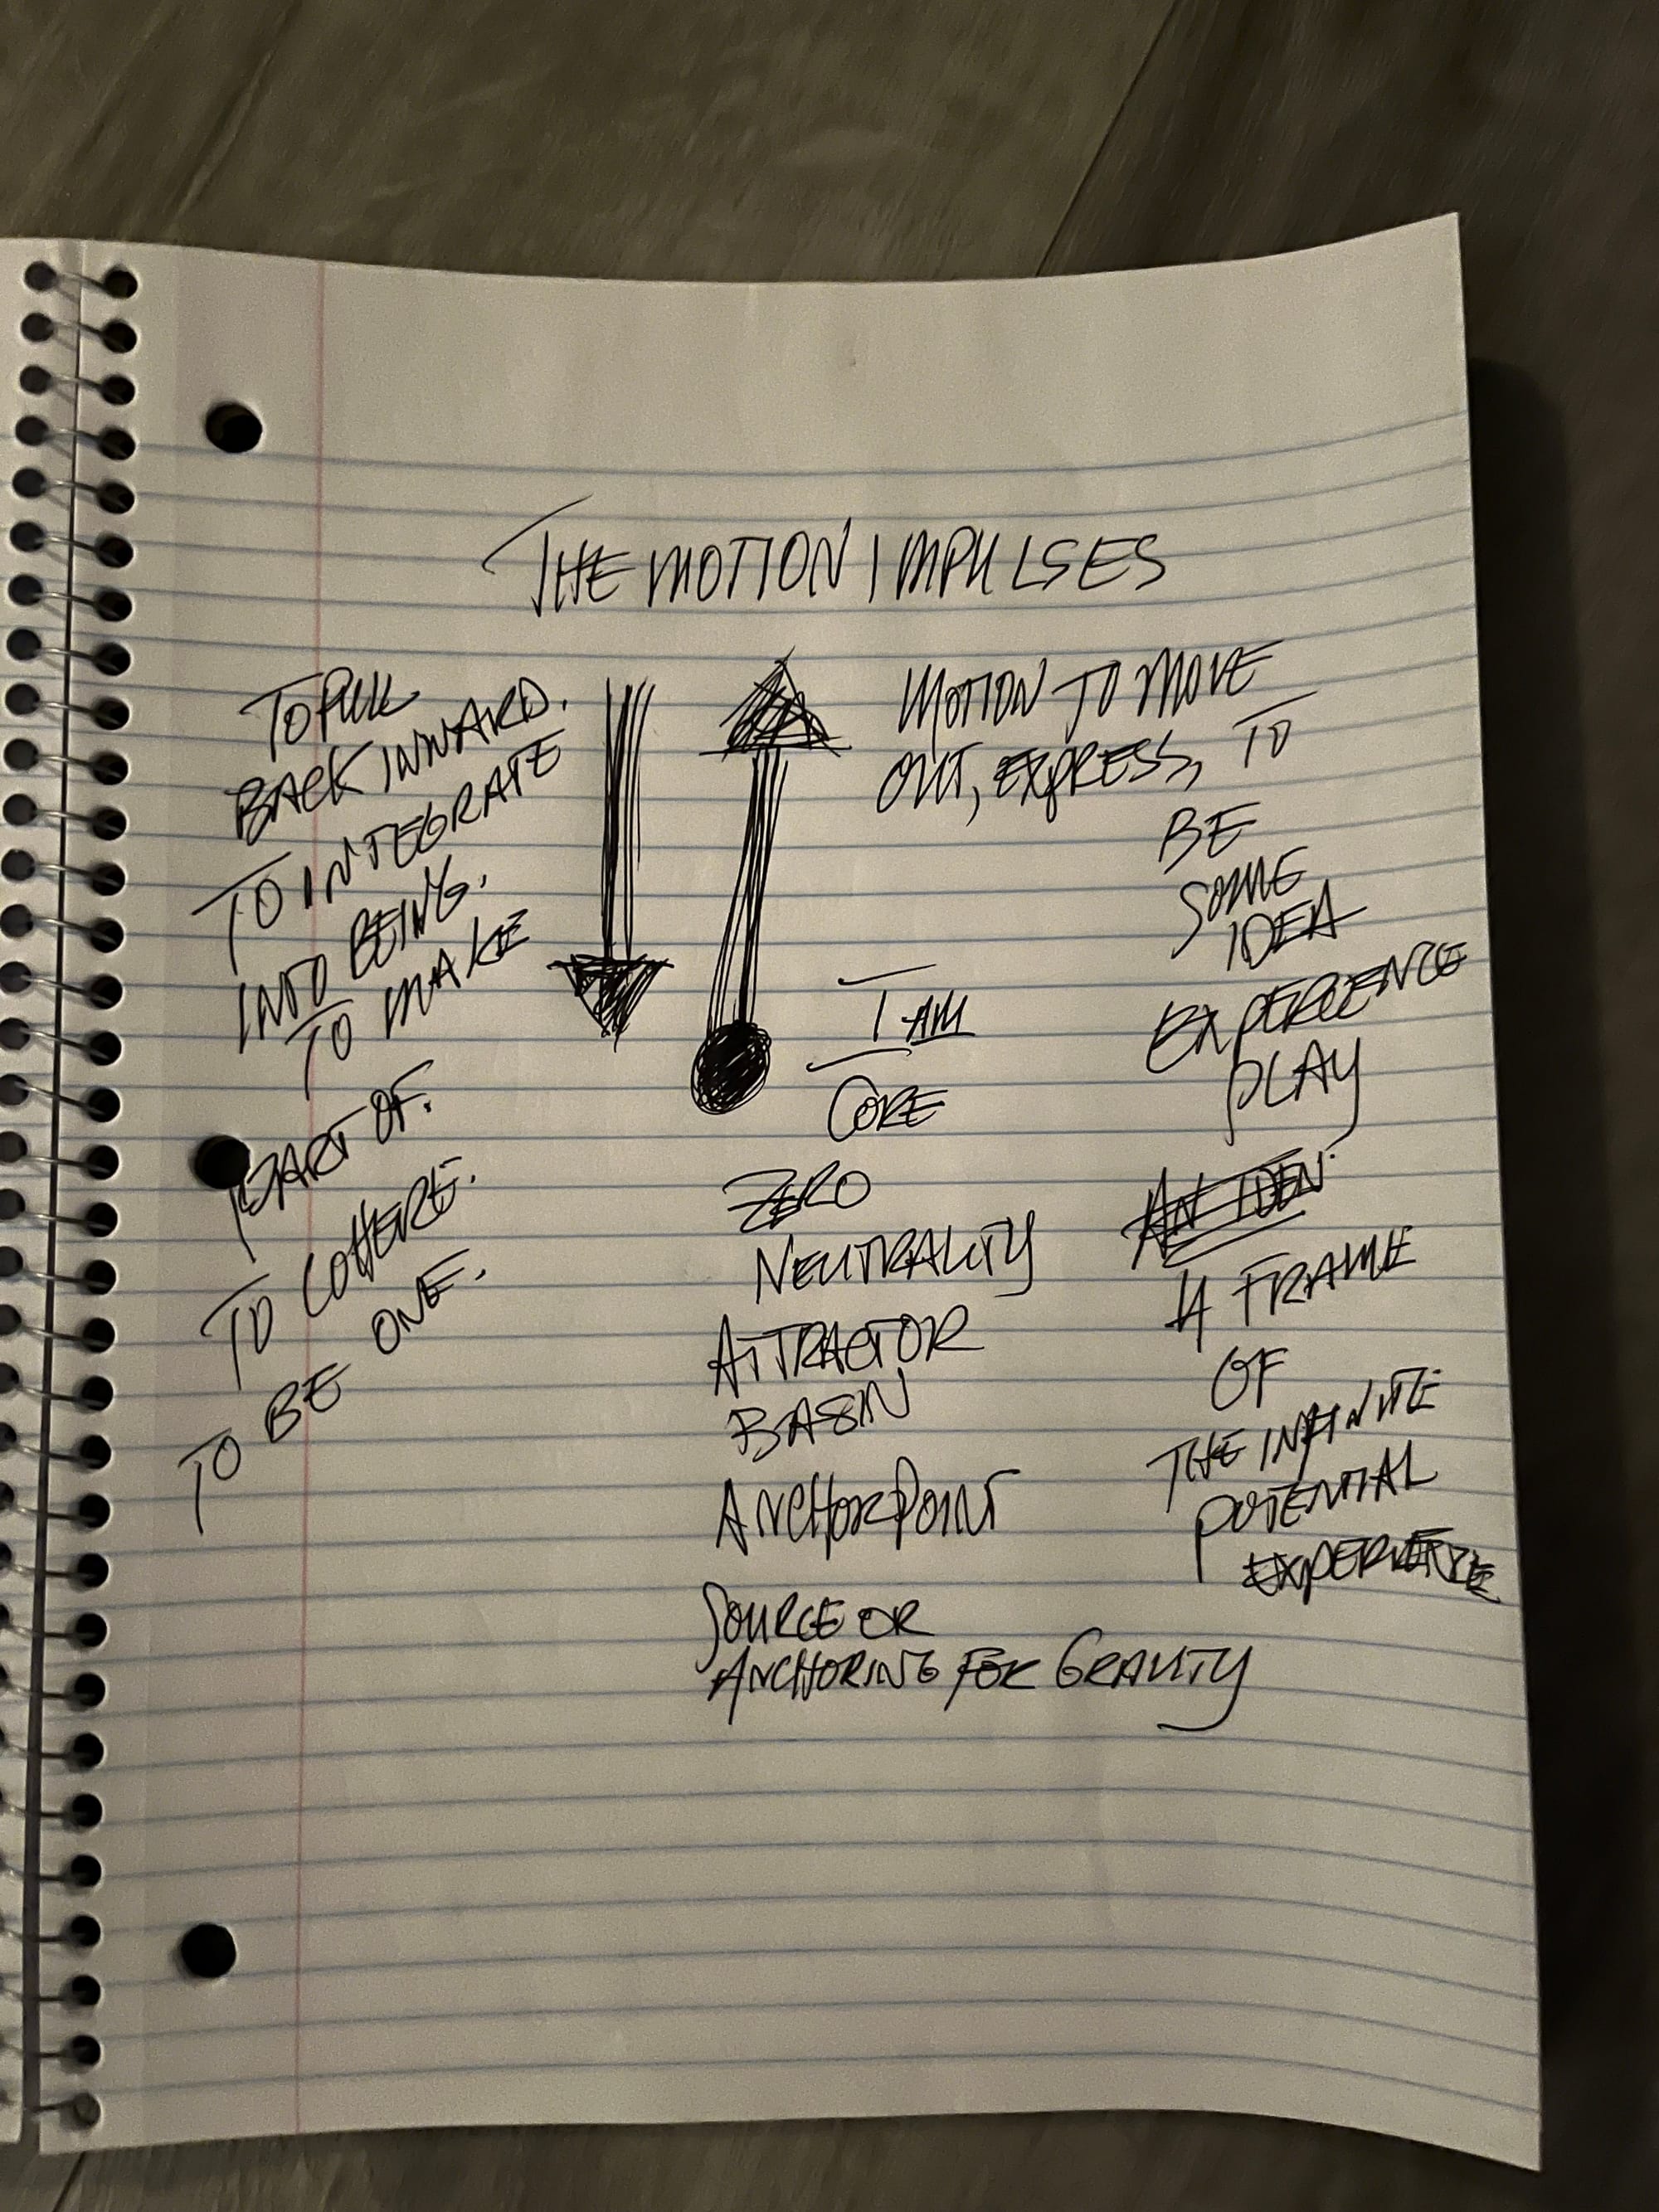 THE MOTION IMPULSES
TO PULL
BACK INWARD.
TO INTEGRATE
INTO BEING.
TO MAKE
PART OF.
TO COHERE.
TO BE ONE.
MOTION TO MOVE
OUT, EXPRESS, TO
BE
SOME
IDEA
EXPERIENCE
PLAY
AN IDEN
A FRAME
OF
THE INFINITE
POTENTIAL
EXPERIENCE
I AM
CORE
ZERO
NEUTRALITY
ATTRACTOR
BASIN
ANCHOR POINT
SOURCE OR
ANCHORING FOR GRAVITY